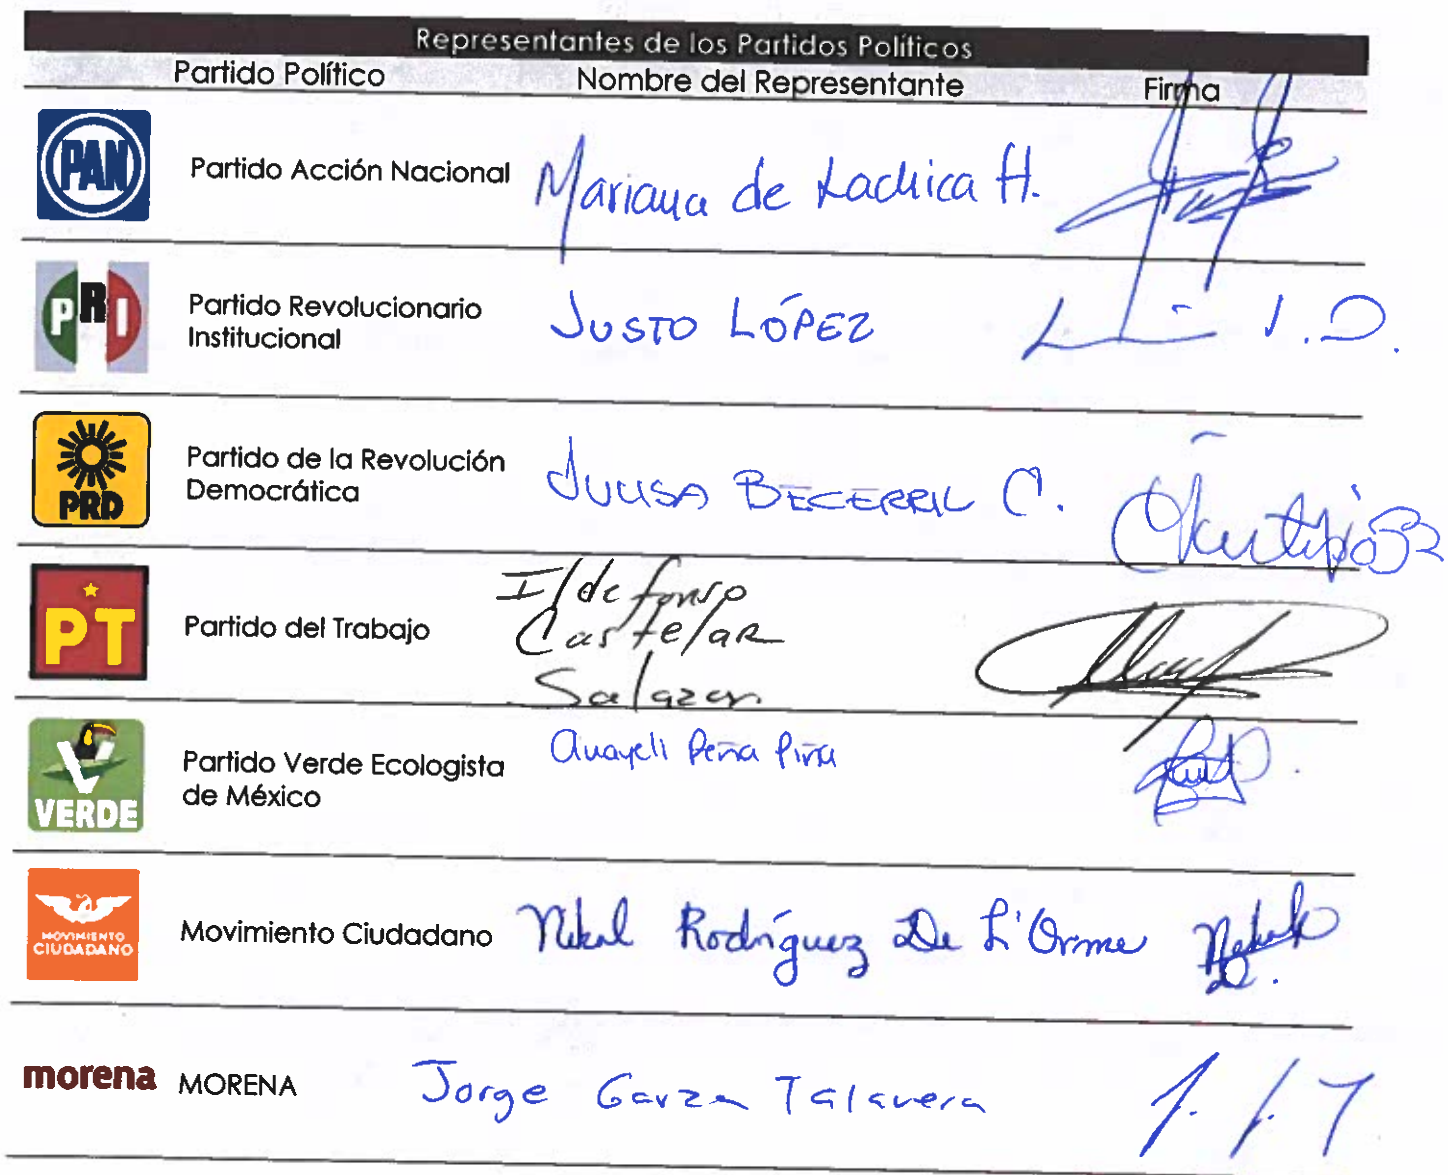 Representantes de los Partidos Políticos
Partido Político Nombre del Representante Firma
PAN Partido Acción Nacional Mariana de Lachica H.
PRI Partido Revolucionario
Institucional
JUSTO LÓPEZ
PRD Partido de la Revolución
Democrática
JULISA BECERRIL C.
PT Partido del Trabajo
Ildefonso
Castelar
Salazar
VERDE Partido Verde Ecologista
de México
Anayeli Peña Piña
MOVIMIENTO
CIUDADANO
Movimiento Ciudadano Rodríguez De L'Orme
morena MORENA Jorge Garza Talavera